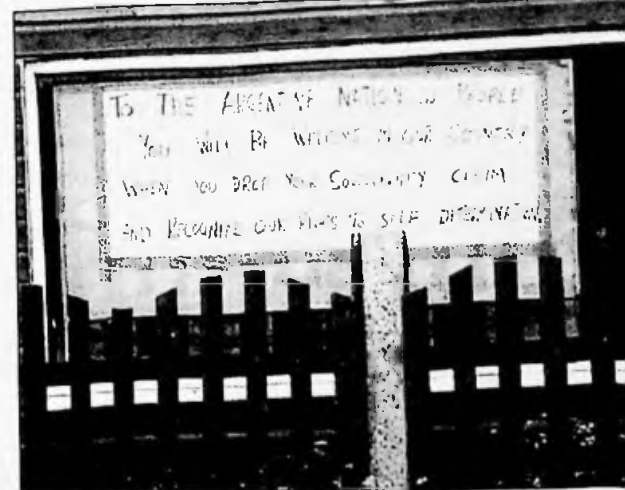 TO THE ARGENTINE NATION & PEOPLE
YOU WILL BE WELCOME IN OUR COUNTRY
WHEN YOU DROP YOUR SOVEREIGNTY CLAIM
AND RECOGNIZE OUR RIGHTS TO SELF DETERMINATION